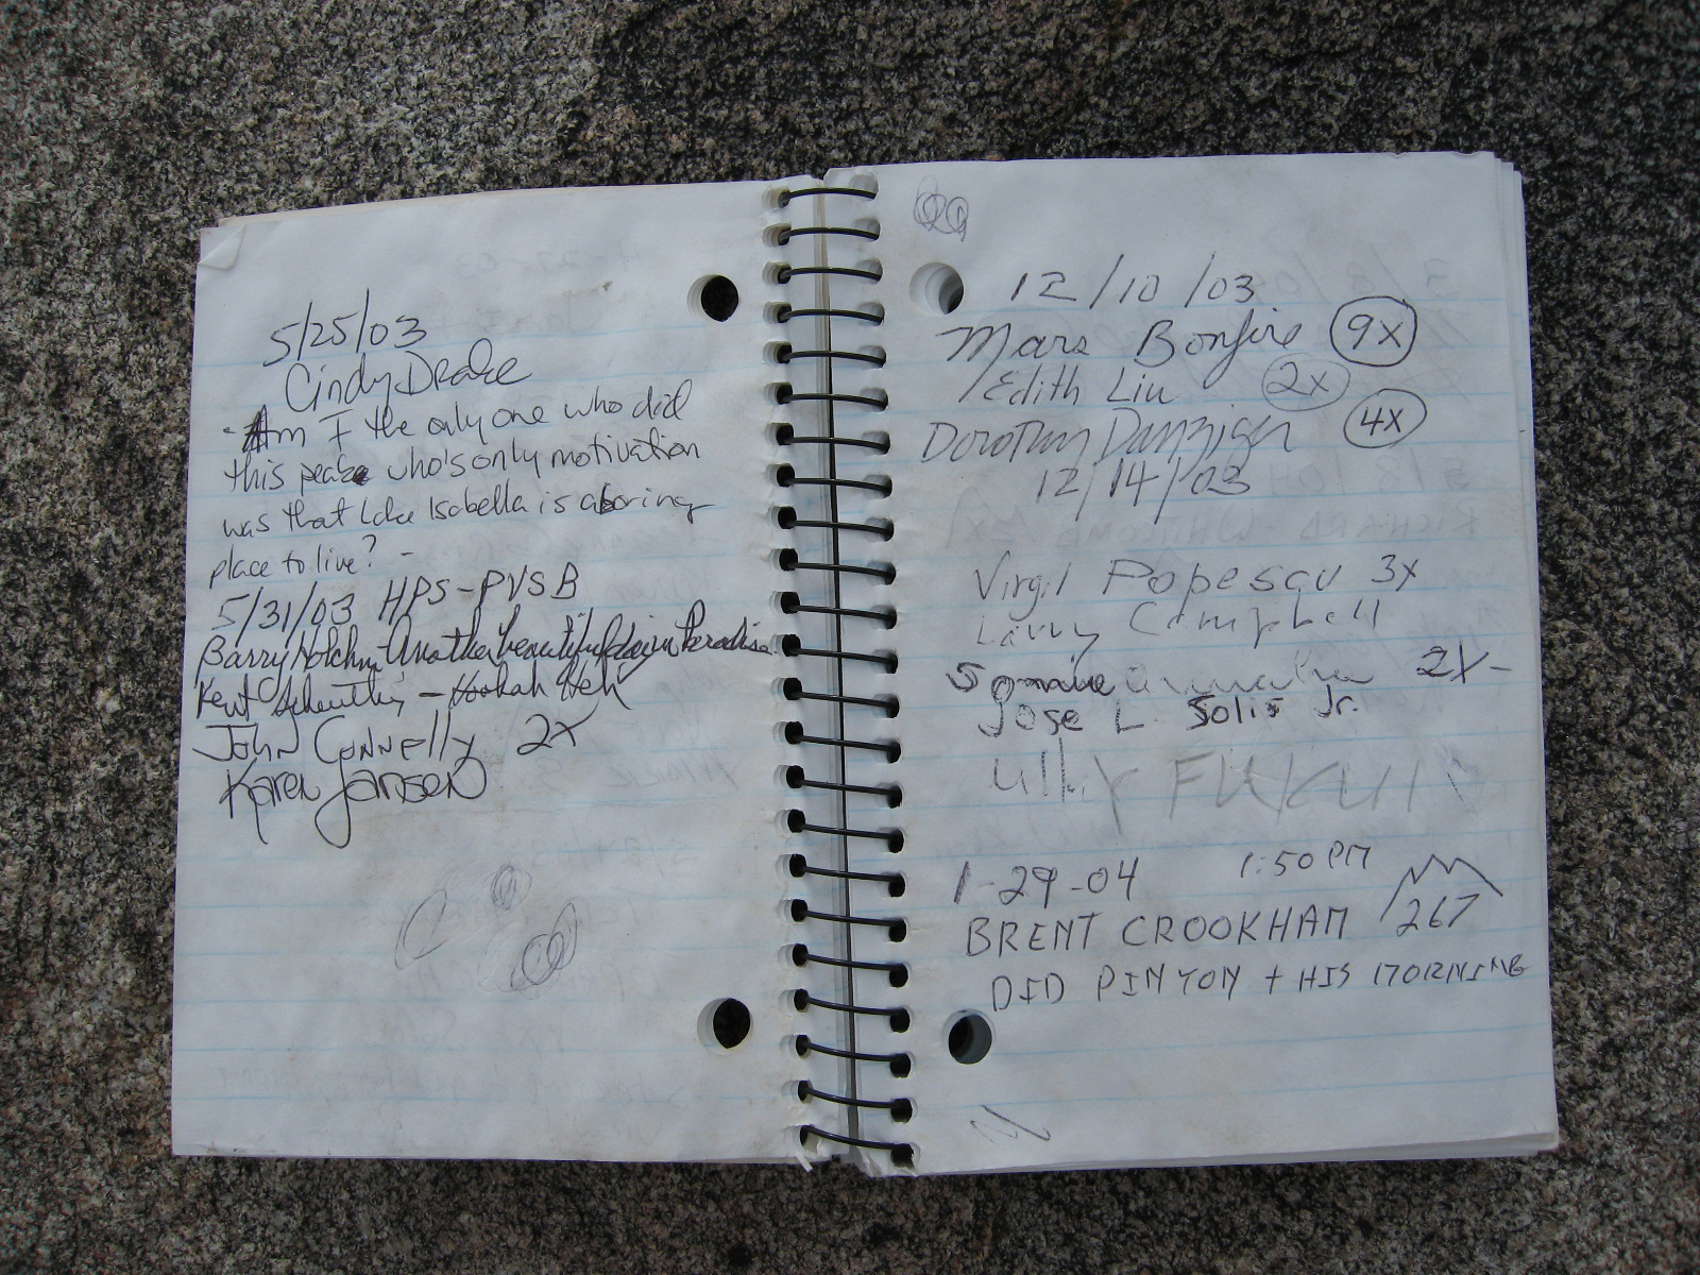 5/25/03
Cindy Drake
- Am I the only one who did
this peake who's only motivation
was that Lake Isabella is a boring
place to live? -
5/31/03 HPS-PVSB
Barry Holchin Another beautiful day in Paradise
Kent - Hookah Heh
John Connelly 2X
Karen Jansen
12/10/03
Mars Bonfire 9X
Edith Liu 2X
Dorothy Danziger 4X
12/14/03
Virgil Popescu 3X
Larry Campbell
Sonnie 2X-
Jose L. Solis Jr.
1-29-04 1:50 PM
BRENT CROOKHAM 267
DID PINYON + HIS MORNING